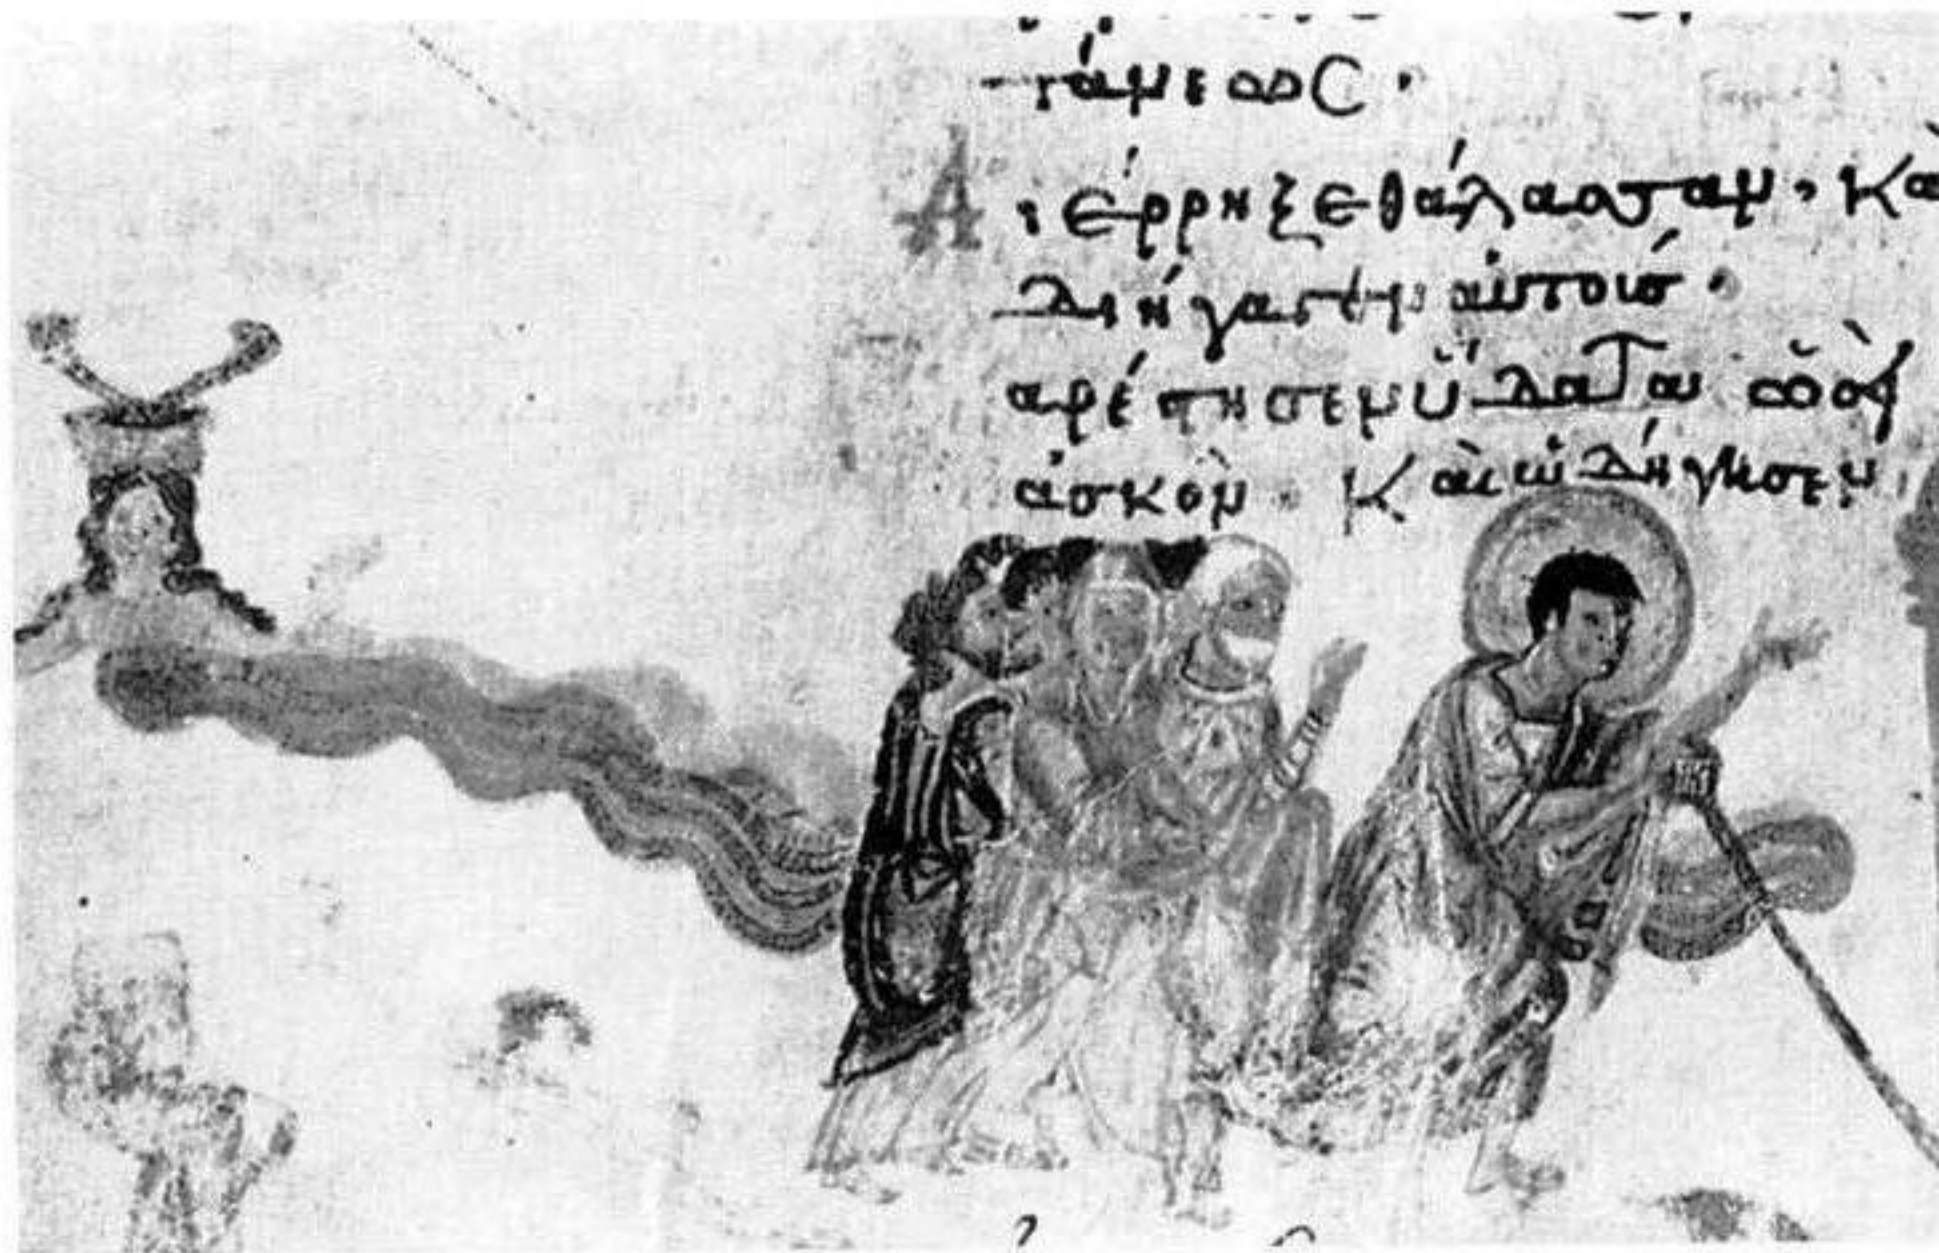 τάνεωσ·
Διέρρηξε θάλασσαν, κὰ
διήγαγεν αὐτούσ·
αρέστησεν ὕδατα ὡσ
ἀσκὸν· Καὶ ὡδήγησεν